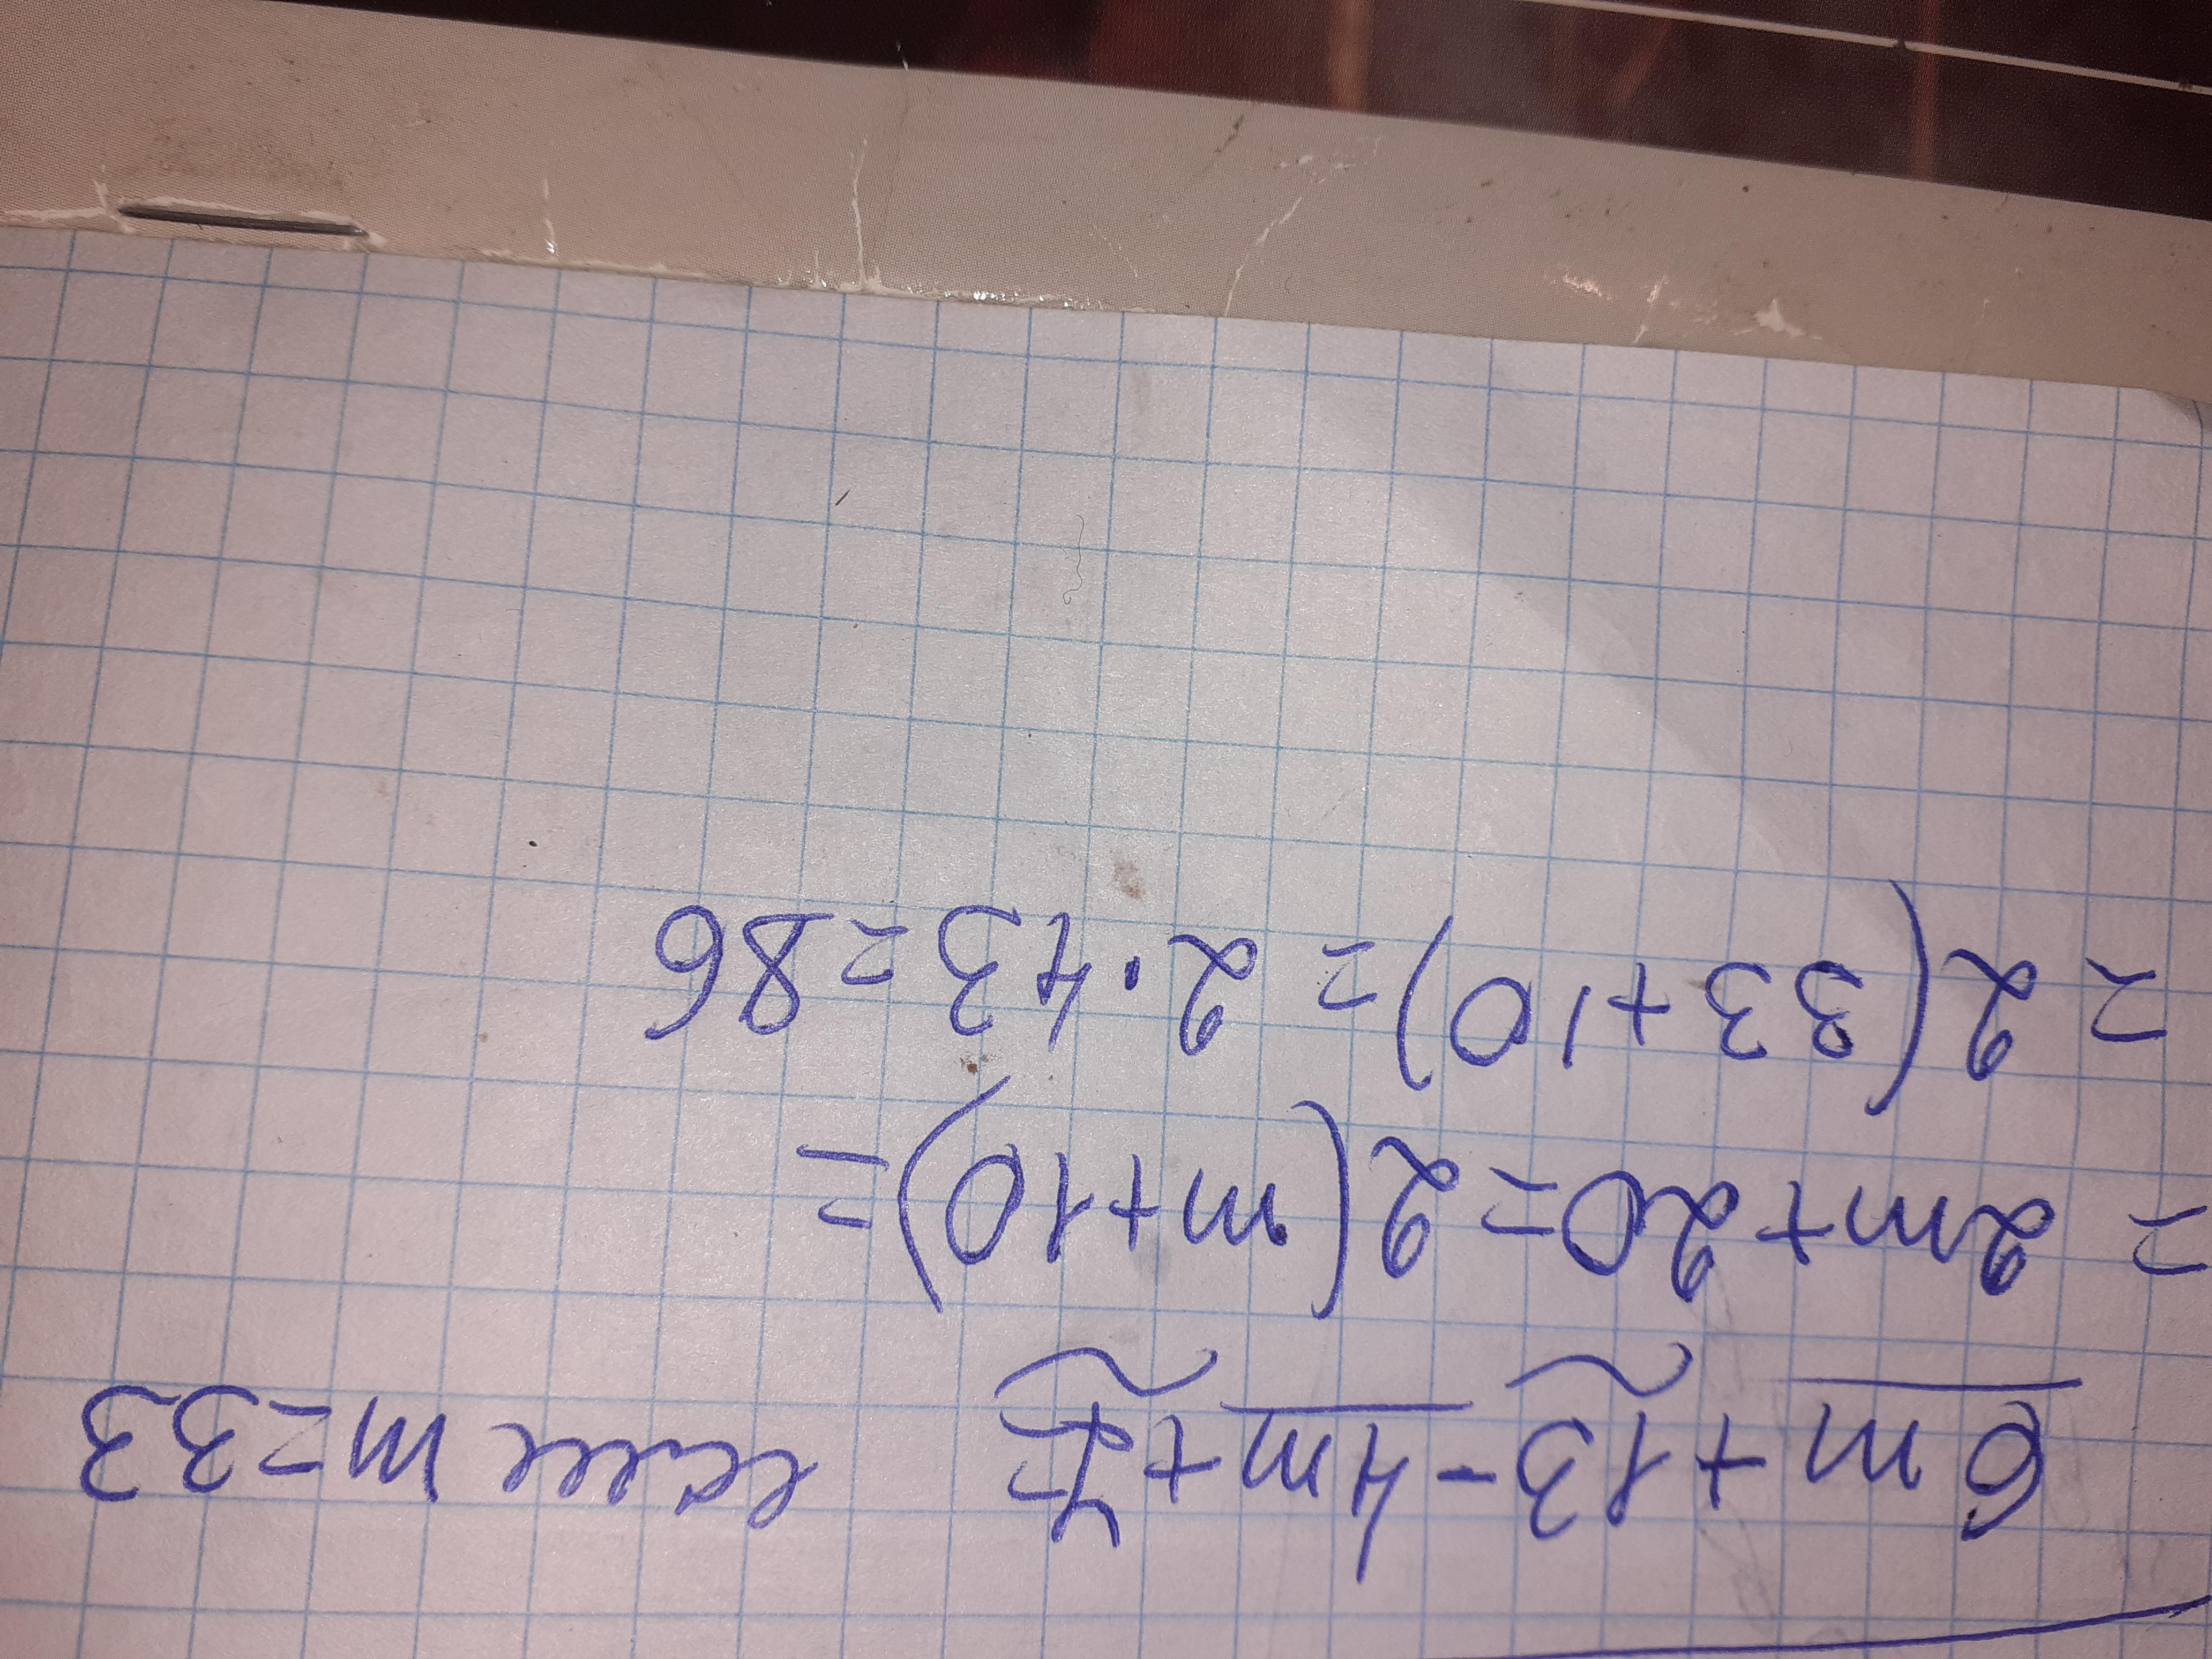 6m+13-4m+7= если m=33
=2m+20=2(m+10)=
=2(33+10)=2·43=86